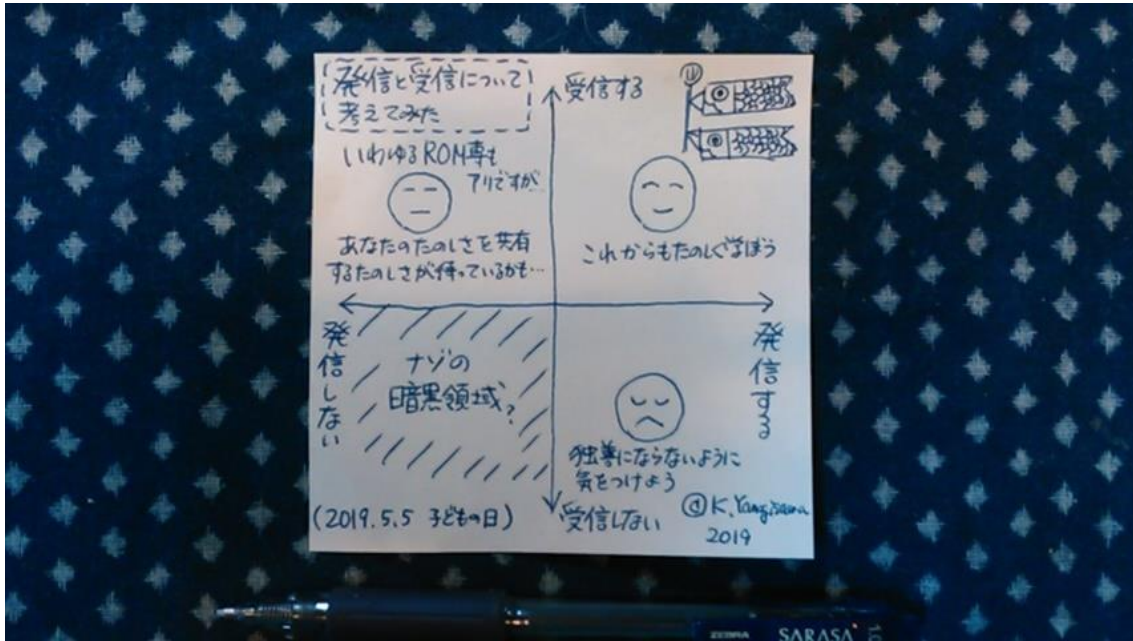 発信と受信について
考えてみた
受信する
いわゆるROM専も
アリですが…
あなたのたのしさを共有
するたのしさが待っているかも…
これからもたのしく学ぼう
発信しない
ナゾの
暗黒領域?
発信する
独善にならないように
気をつけよう
(2019.5.5 子どもの日)
受信しない
2019
ZEBRA SARASA 1.0